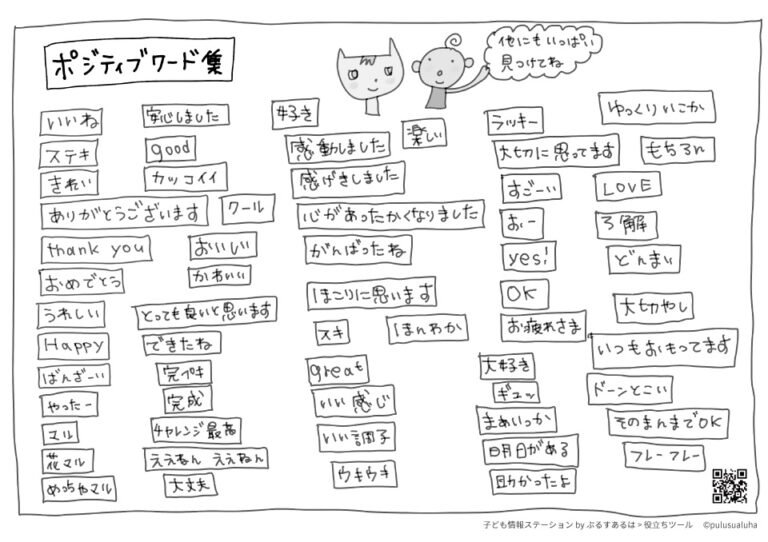 ポジティブワード集
他にもいっぱい
見つけてね
いいね
ステキ
きれい
ありがとうございます
thank you
おめでとう
うれしい
Happy
ばんざーい
やったー
マル
花マル
めっちゃマル
安心しました
good
カッコイイ
クール
おいしい
かわいい
とっても良いと思います
できたね
完ペキ
完成
チャレンジ最高
ええねん ええねん
大丈夫
好き
楽しい
感動しました
感げきしました
心があったかくなりました
がんばったね
ほこりに思います
スキ
ほんわか
great
いい感じ
いい調子
ウキウキ
ラッキー
大切に思ってます
すごーい
おー
yes!
OK
お疲れさま
大好き
ギュッ
まあいっか
明日がある
助かったよ
ゆっくりいこか
もちろん
LOVE
了解
どんまい
大切やし
いつもおもってます
ドーンとこい
そのまんまでOK
フレーフレー
子ども情報ステーション by ぷるすあるは > 役立ちツール ©pulusualuha